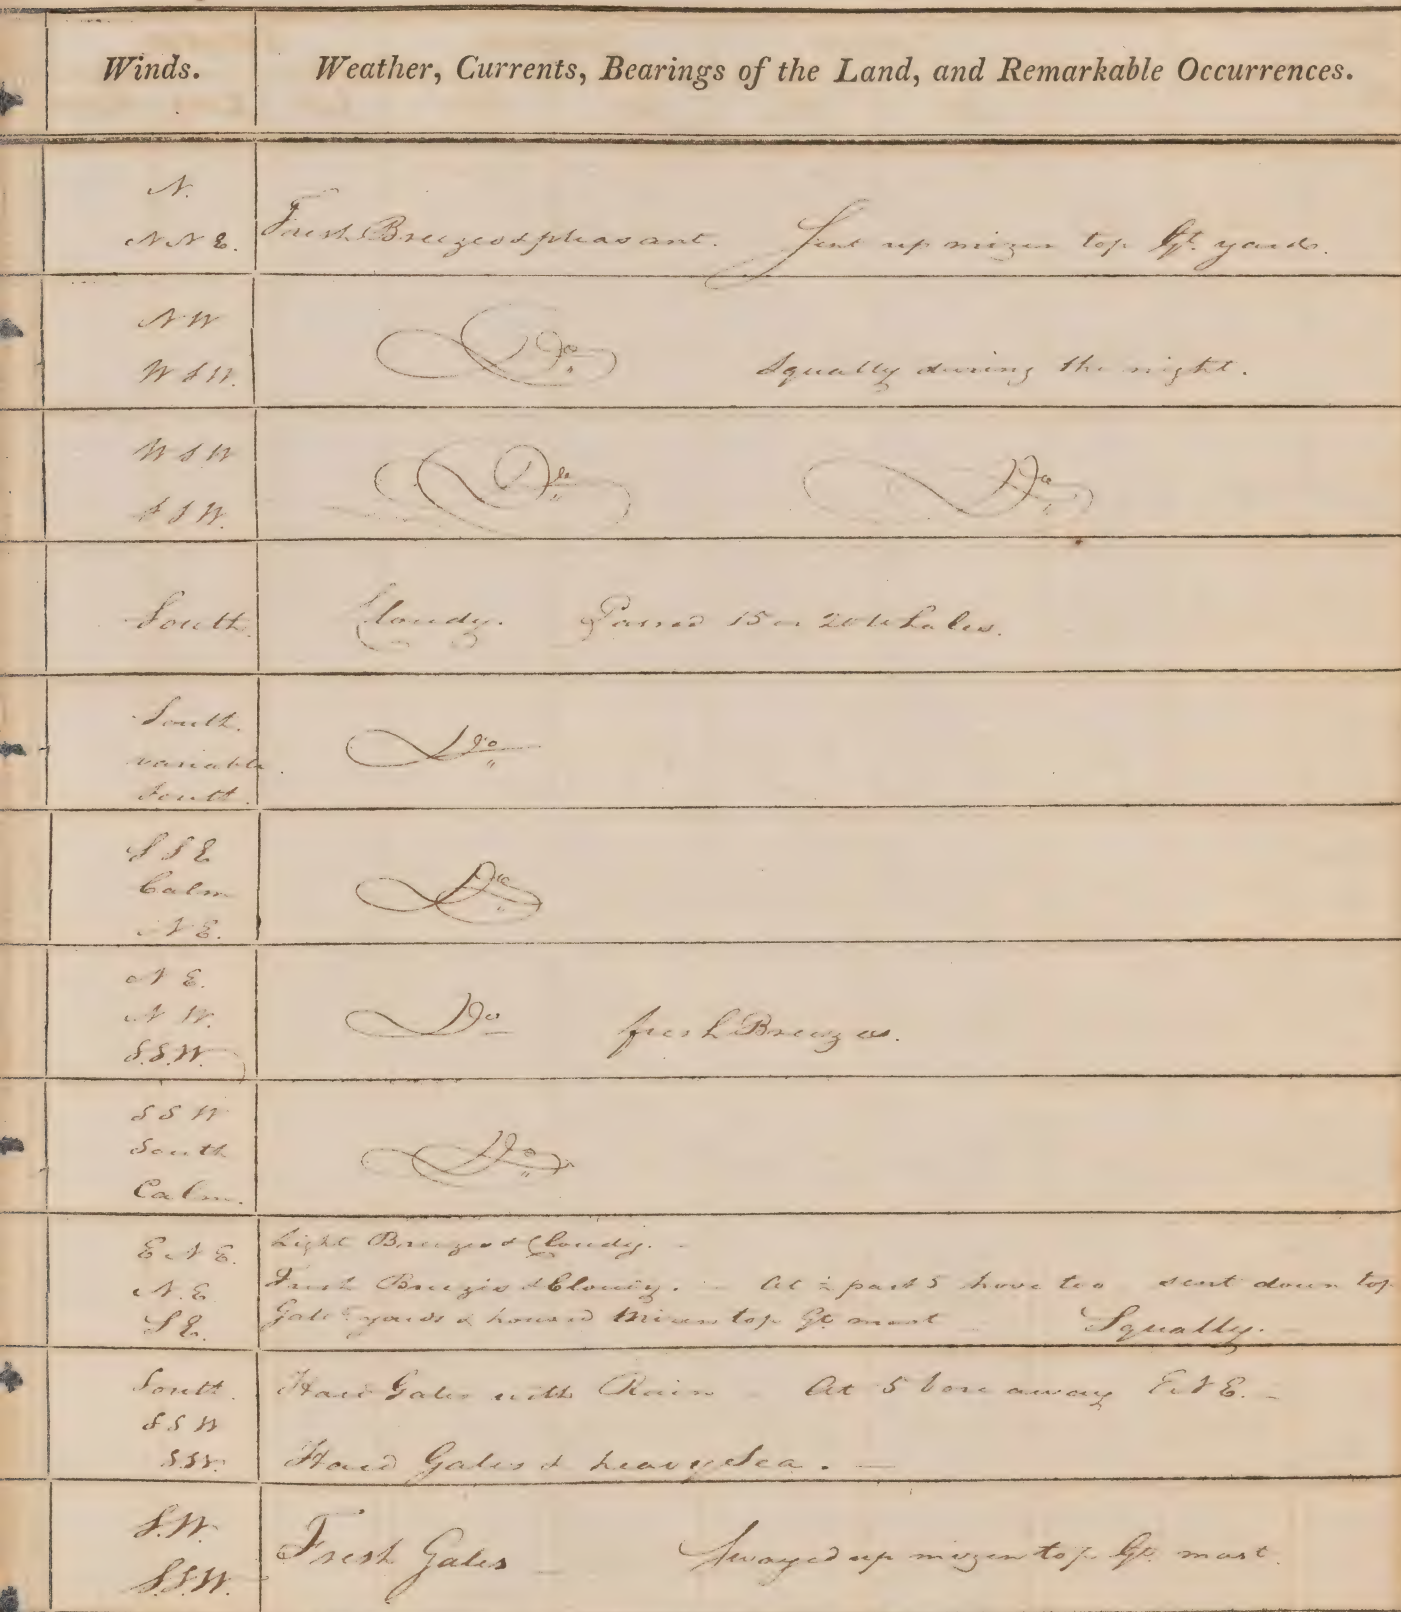 Winds. Weather, Currents, Bearings of the Land, and Remarkable Occurrences.
N.
N N E. Fresh Breezes & pleasant. Sent up mizen top Gt. yards.
N W Do
W S W. Squally during the night.
W S W Do Do
S S W.
South. Cloudy. Passed 15 or 20 Whales.
South. Do
variable.
South.
S S E
Calm Do
N E.
N E.
N W. Do fresh Breezes.
S.S.W.
S S W
South Do
Calm.
E N E. Light Breezes & Cloudy.
N.E. Fresh Breezes & Cloudy. At ½ past 5 hove too sent down top
S E. Galt yards & housed Mizen top Gt mast Squally.
South. Hard Gales with Rain At 5 bore away
S S W
S S W. Hard Gales & heavy Sea.
S.W. Fresh Gales Swayed up mizen top Gt. mast.
S.S.W.